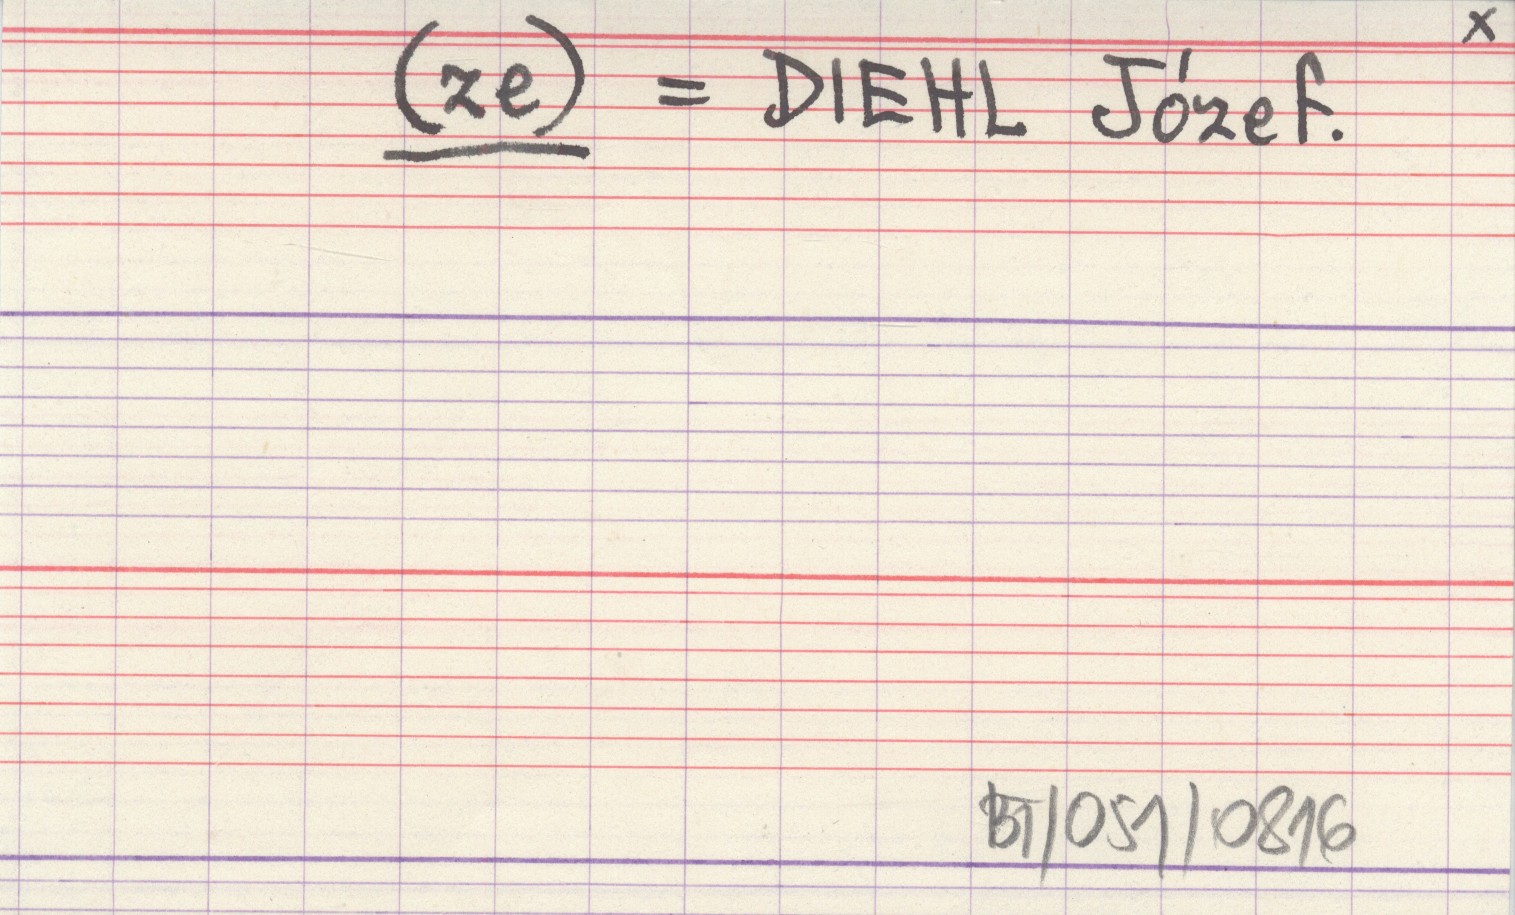 x
(ze) = DIEHL Józef.
BJ/051/0816